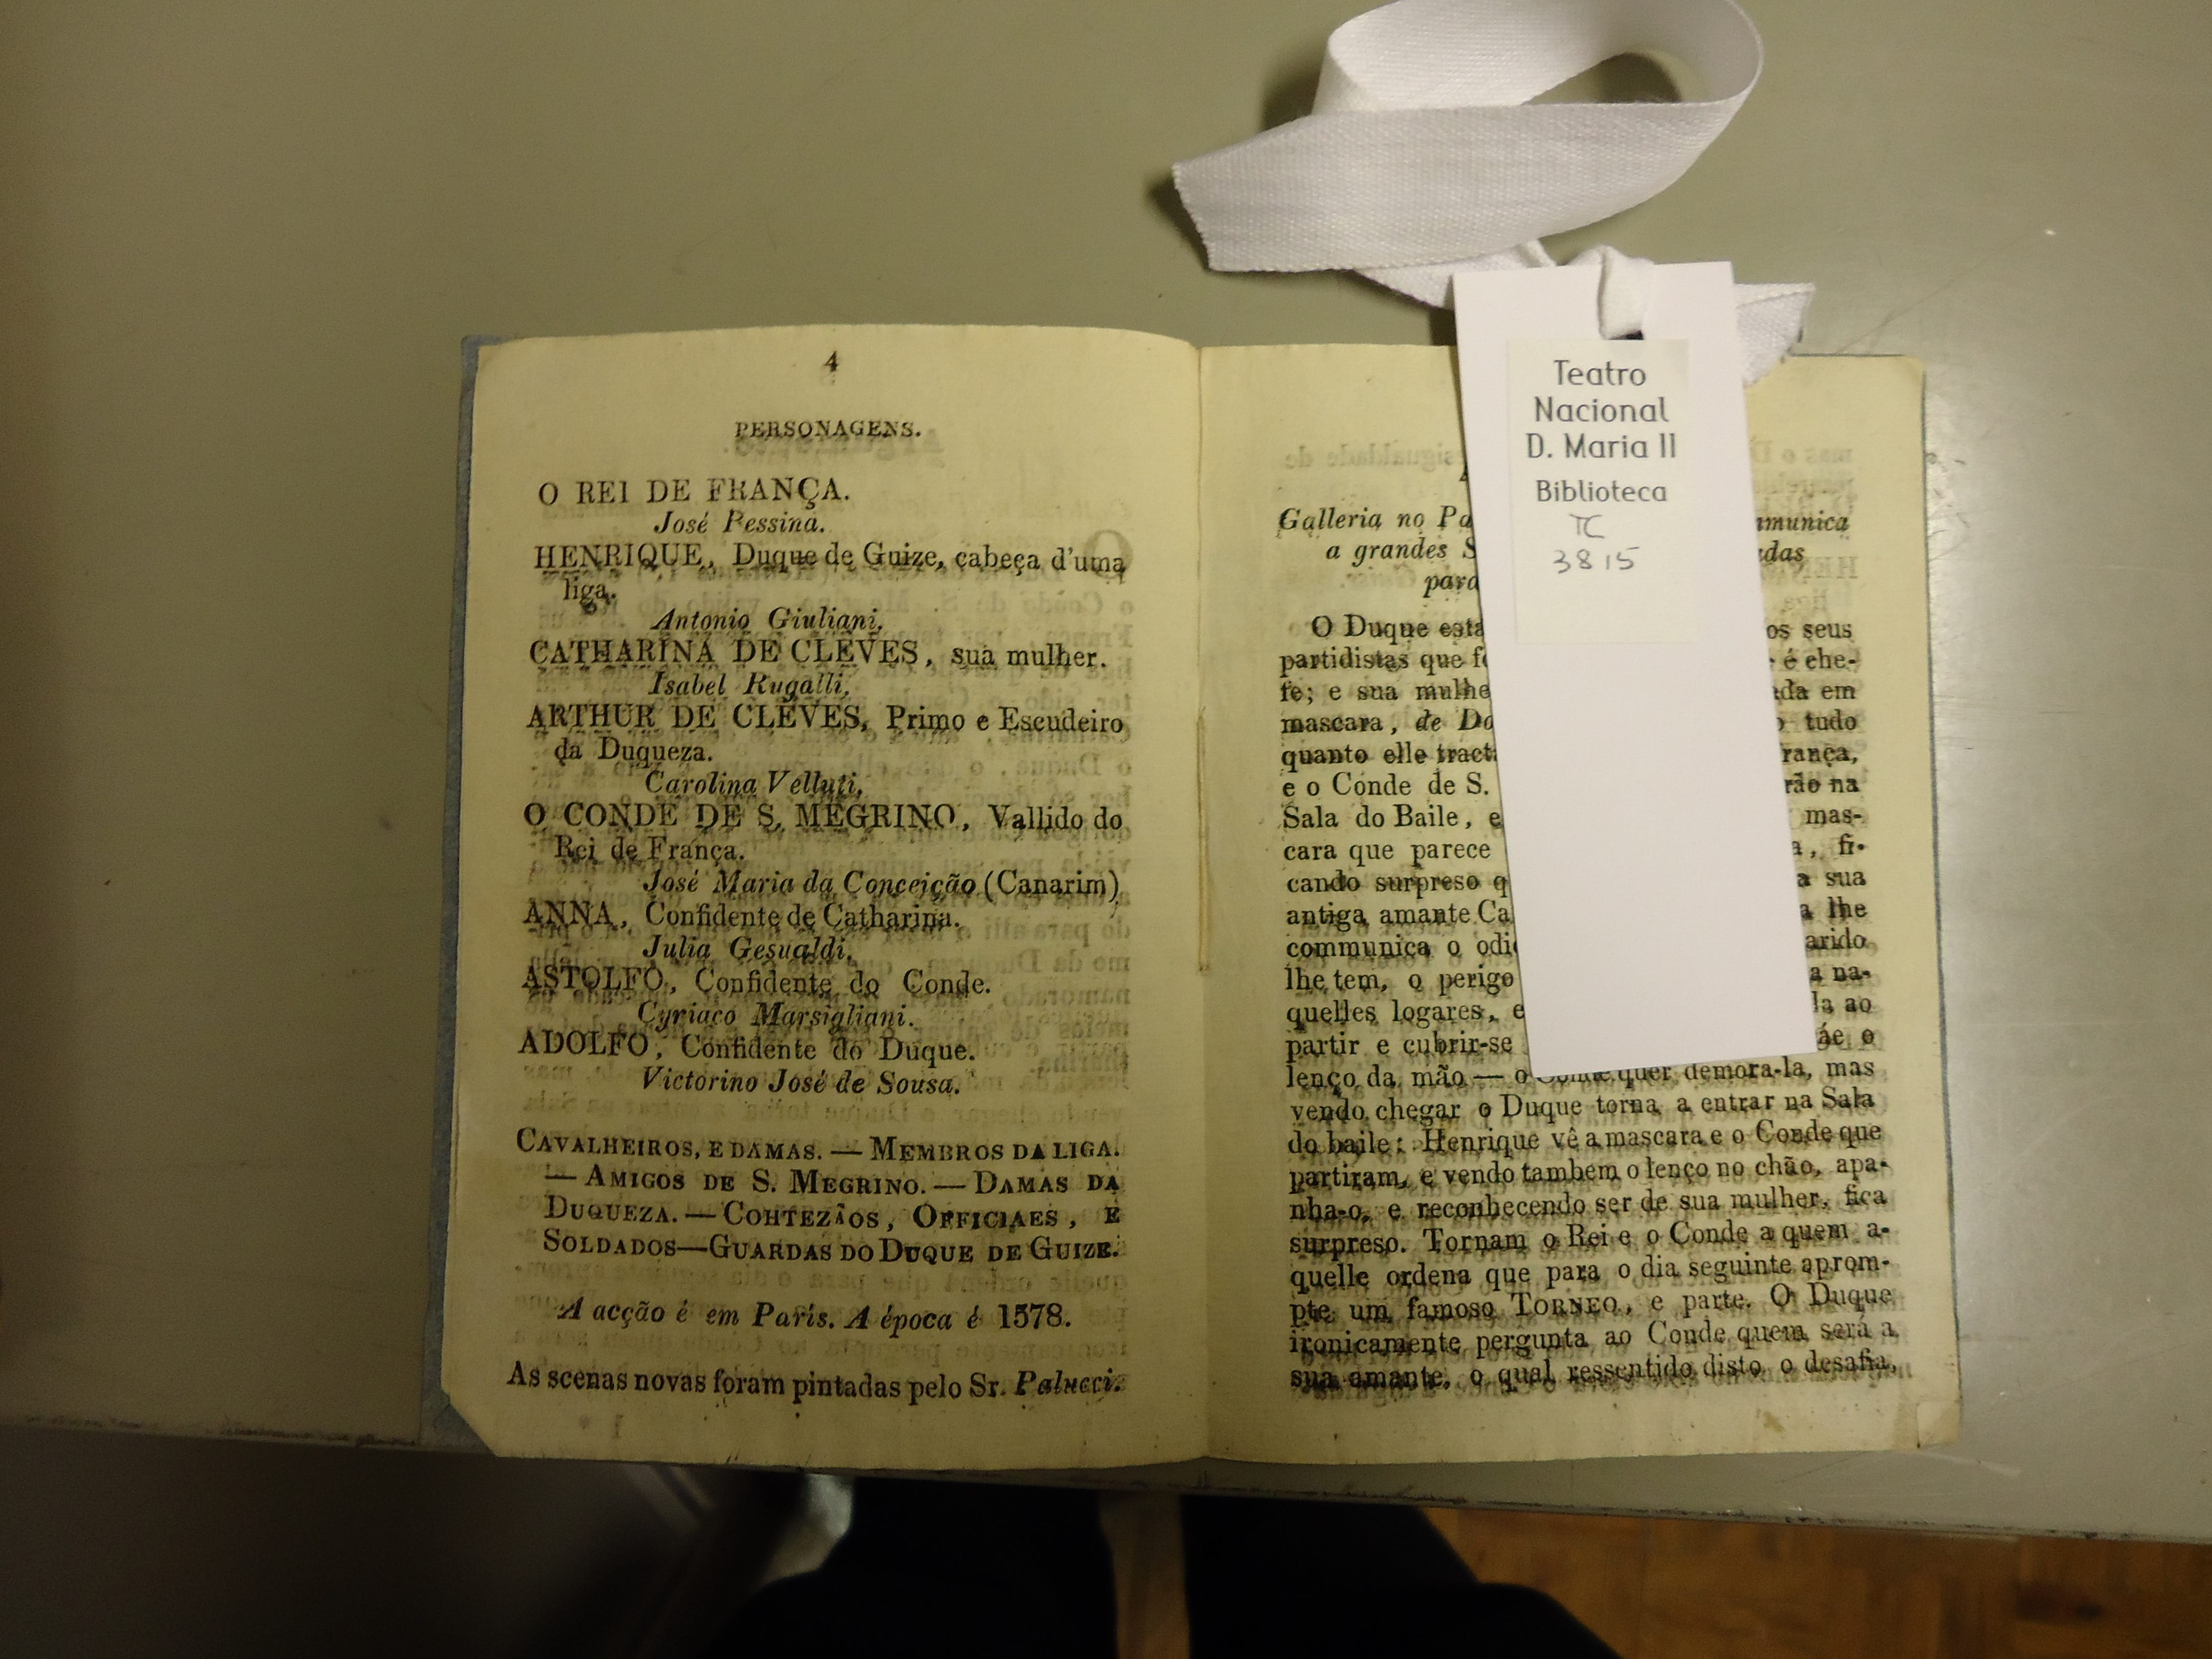 4
PERSONAGENS.
O REI DE FRANÇA.
José Pessina.
HENRIQUE, Duque de Guize, cabeça d'uma
liga.
Antonio Giuliani.
CATHARINA DE CLÈVES, sua mulher.
Isabel Rugalli.
ARTHUR DE CLÈVES, Primo e Escudeiro
da Duqueza.
Carolina Velluti.
O CONDE DE S. MÉGRINO, Vallido do
Rei de França.
José Maria da Conceição (Canarim)
ANNA, Confidente de Catharina.
Julia Gesualdi.
ASTOLFO, Confidente do Conde.
Cyriaco Marsigliani.
ADOLFO, Confidente do Duque.
Victorino José de Sousa.
CAVALHEIROS, E DAMAS. — MEMBROS DA LIGA.
— AMIGOS DE S. MEGRINO. — DAMAS DA
DUQUEZA. — COHTEZÃOS, OFFICIAES, E
SOLDADOS—GUARDAS DO DUQUE DE GUIZE.
A acção é em París. A época é 1578.
As scenas novas foram pintadas pelo Sr. Palucci.
Teatro
Nacional
D. Maria II
Biblioteca
TC
3815
Galleria no
a grandes
O Duque os seus
partidistas que é che-
fe; e sua em
mascara, de tudo
quanto elle
e o Conde de S. na
Sala do Baile, mas-
cara que parece fi-
cando surpreso sua
antiga amante lhe
communica o
lhe tem, o perigo na-
quelles logares, ao
partir e cubrir-se o
lenço da mão — o Conde quer demora-la, mas
vendo chegar o Duque torna a entrar na Sala
do baile: Henrique vê a mascara e o Conde que
partiram, e vendo tambem o lenço no chão, apa-
nha-o, e reconhecendo ser de sua mulher, fica
surpreso. Tornam o Rei e o Conde a quem a-
quelle ordena que para o dia seguinte aprom-
pte um famoso TORNEO, e parte. O Duque
ironicamente pergunta ao Conde quem será a
sua amante, o qual ressentido disto o desafia,